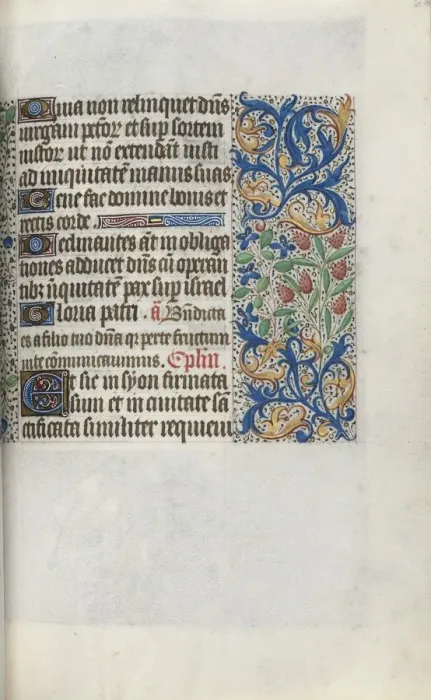 Quia non relinquet dñs
virgam pctor̃ et sup̃ sortem
iustor̃ ut nõ extendãt iusti
ad iniquitatẽ manus suas
Bene fac domine bonis et
rectis corde.
Declinantes ãt in obliga
tiones adducet dñs cũ operan
tibꝫ iniquitatẽ pax sup̃ israel
Gloria patri . ã Bñdicta
es a filio tuo dñã qꝛ per te fructum
vite cõmunicauimus.
Et sic in syon firmata
sum et in ciuitate sã
ctificata similiter requieui